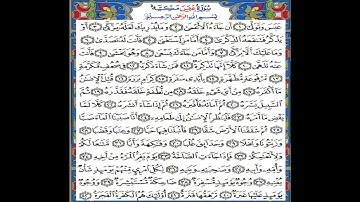 سُورَةُ عَبَسَ مَكِّيَّة
بِسْمِ اللَّهِ الرَّحْمَٰنِ الرَّحِيمِ
عَبَسَ وَتَوَلَّىٰ ۝ أَن جَاءَهُ الْأَعْمَىٰ ۝ وَمَا يُدْرِيكَ لَعَلَّهُ يَزَّكَّىٰ ۝ أَوْ
يَذَّكَّرُ فَتَنفَعَهُ الذِّكْرَىٰ ۝ أَمَّا مَنِ اسْتَغْنَىٰ ۝ فَأَنتَ لَهُ تَصَدَّىٰ ۝
وَمَا عَلَيْكَ أَلَّا يَزَّكَّىٰ ۝ وَأَمَّا مَن جَاءَكَ يَسْعَىٰ ۝ وَهُوَ يَخْشَىٰ ۝ فَأَنتَ
عَنْهُ تَلَهَّىٰ ۝ كَلَّا إِنَّهَا تَذْكِرَةٌ ۝ فَمَن شَاءَ ذَكَرَهُ ۝ فِي صُحُفٍ مُّكَرَّمَةٍ
۝ مَّرْفُوعَةٍ مُّطَهَّرَةٍ ۝ بِأَيْدِي سَفَرَةٍ ۝ كِرَامٍ بَرَرَةٍ ۝ قُتِلَ الْإِنسَانُ
مَا أَكْفَرَهُ ۝ مِنْ أَيِّ شَيْءٍ خَلَقَهُ ۝ مِن نُّطْفَةٍ خَلَقَهُ فَقَدَّرَهُ ۝ ثُمَّ
السَّبِيلَ يَسَّرَهُ ۝ ثُمَّ أَمَاتَهُ فَأَقْبَرَهُ ۝ ثُمَّ إِذَا شَاءَ أَنشَرَهُ ۝ كَلَّا لَمَّا
يَقْضِ مَا أَمَرَهُ ۝ فَلْيَنظُرِ الْإِنسَانُ إِلَىٰ طَعَامِهِ ۝ أَنَّا صَبَبْنَا الْمَاءَ صَبًّا
۝ ثُمَّ شَقَقْنَا الْأَرْضَ شَقًّا ۝ فَأَنبَتْنَا فِيهَا حَبًّا ۝ وَعِنَبًا وَقَضْبًا
۝ وَزَيْتُونًا وَنَخْلًا ۝ وَحَدَائِقَ غُلْبًا ۝ وَفَاكِهَةً وَأَبًّا ۝ مَّتَاعًا لَّكُمْ
وَلِأَنْعَامِكُمْ ۝ فَإِذَا جَاءَتِ الصَّاخَّةُ ۝ يَوْمَ يَفِرُّ الْمَرْءُ مِنْ أَخِيهِ
۝ وَأُمِّهِ وَأَبِيهِ ۝ وَصَاحِبَتِهِ وَبَنِيهِ ۝ لِكُلِّ امْرِئٍ مِّنْهُمْ يَوْمَئِذٍ شَأْنٌ
يُغْنِيهِ ۝ وُجُوهٌ يَوْمَئِذٍ مُّسْفِرَةٌ ۝ ضَاحِكَةٌ مُّسْتَبْشِرَةٌ ۝ وَوُجُوهٌ
يَوْمَئِذٍ عَلَيْهَا غَبَرَةٌ ۝ تَرْهَقُهَا قَتَرَةٌ ۝ أُولَٰئِكَ هُمُ الْكَفَرَةُ الْفَجَرَةُ ۝